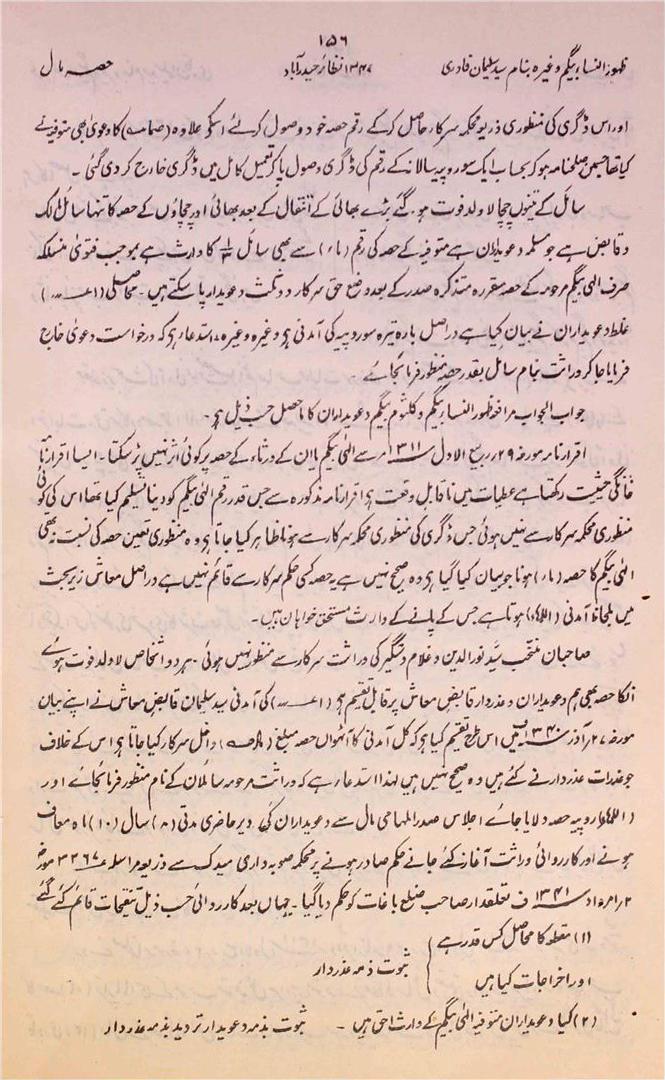 ۱۵۶
ظہور النساء بیگم وغیرہ بنام سید سلیمان قادری ۱۳۴۷ نظائر حیدرآباد حصہ مال
اور اس ڈگری کی منظوری ذریعہ محکمہ سرکار حاصل کر کے رقم حصہ خود وصول کرلئے اسکے علاوہ کا دعویٰ بھی متوفیہ نے
کیا تھا جسمیں صلحنامہ ہو کر بحساب ایک سو روپیہ سالانہ کے رقم کی ڈگری وصول پا کر تعمیل کامل میں ڈگری خارج کر دی گئی ۔
سائل کے تینوں چچا لاولد فوت ہو گئے بڑے بھائی کے انتقال کے بعد بھائی اور چچاؤں کے حصہ کا تنہا سائل مالک
و قابض ہے جو مسلمہ دعویداران ہے متوفیہ کے حصہ کی رقم سے بھی سائل کا وارث ہے بموجب فتویٰ منسلکہ
صرف الٰہی بیگم مرحومہ کے حصہ مقررہ متذکرہ صدر کے بعد وضع حق سرکار دو ثلث دعویدار پا سکتے ہیں ۔ محاصلی
غلط دعویداران نے بیان کیا ہے دراصل بارہ تیرہ سو روپیہ کی آمدنی ہی وغیرہ وغیرہ ۔ استدعاء ہی کہ درخواست دعویٰ خارج
فرمایا جا کر وراثت بنام سائل بقدر حصہ منظور فرمائیجائے ۔
جواب الجواب مرافعہ ظہور النساء بیگم و کلثوم بیگم دعویداران کا ماحصل حسب ذیل ہی ۔
اقرارنامہ مورخہ ۲۹؍ ربیع الاول ۱۳۱۱ سے الٰہی بیگم یا ان کے ورثاء کے حصہ پر کوئی اثر نہیں پڑ سکتا ۔ ایسا اقرارنامہ
خانگی حیثیت رکھتا ہے عطیات میں ناقابل وقعت ہی اقرارنامہ مذکورہ سے جس قدر رقم الٰہی بیگم کو دینا تسلیم کیا تھا اس کی کوئی
منظوری محکمہ سرکار سے نہیں ہوئی جس ڈگری کی منظوری محکمہ سرکار سے ہونا ظاہر کیا جاتا ہی وہ منظوری تعین حصہ کی نسبت نہ تھی
الٰہی بیگم کا حصہ ہونا جو بیان کیا گیا ہی وہ صحیح نہیں ہے یہ حصہ کسی حکم سرکار سے قائم نہیں ہے دراصل معاش زیر بحث
میں بلحاظ آمدنی ہوتا ہے جس کے پانے کے وارث مستحق خواہان ہیں ۔
صاحبان منتخب سید نور الدین و غلام دستگیر کی وراثت سرکار سے منظور نہیں ہوئی ۔ ہر دو اشخاص لاولد فوت ہوئے
انکا حصہ بھی ہم دعویداران و عذردار قابض معاش پر قابل تقسیم ہی کی آمدنی سید سلیمان قابض معاش نے اپنے بیان
مورخہ ۲۷؍ آذر ۱۳۴۰ میں اس طرح تقسیم کیا ہے کہ کل آمدنی کا آٹھواں حصہ مبلغ داخل سرکار کیا جاتا ہی اس کے خلاف
جو عذرات عذردار نے کئے ہیں وہ صحیح نہیں ہیں لہذا استدعاء ہے کہ وراثت مرحومہ سائلان کے نام منظور فرمائیجائے اور
روپیہ حصہ دلایا جائے اجلاس صدر المہامی مال سے دعویداران کی دیر حاضری مدتی (۸) سال (۱۰) ماہ معاف
ہونے اور کارروائی وراثت آغاز کئے جانے حکم صادر ہونے پر محکمہ صوبہ داری میدک سے ذریعہ مراسلہ ۳۳۶۷ مورخہ
۲؍ امرداد ۱۳۴۱ ف تعلقدار صاحب ضلع باغات کو حکم دیا گیا ۔ جہاں بعد کارروائی حسب ذیل تنقیحات قائم کئے گئے
(۱) مقطعہ کا محاصل کس قدر ہے
اور اخراجات کیا ہیں } ثبوت ذمہ عذردار
(۲) کیا دعویداران متوفیہ الٰہی بیگم کے وارث احق ہیں ۔ ثبوت بذمہ دعویدار تردید بذمہ عذردار